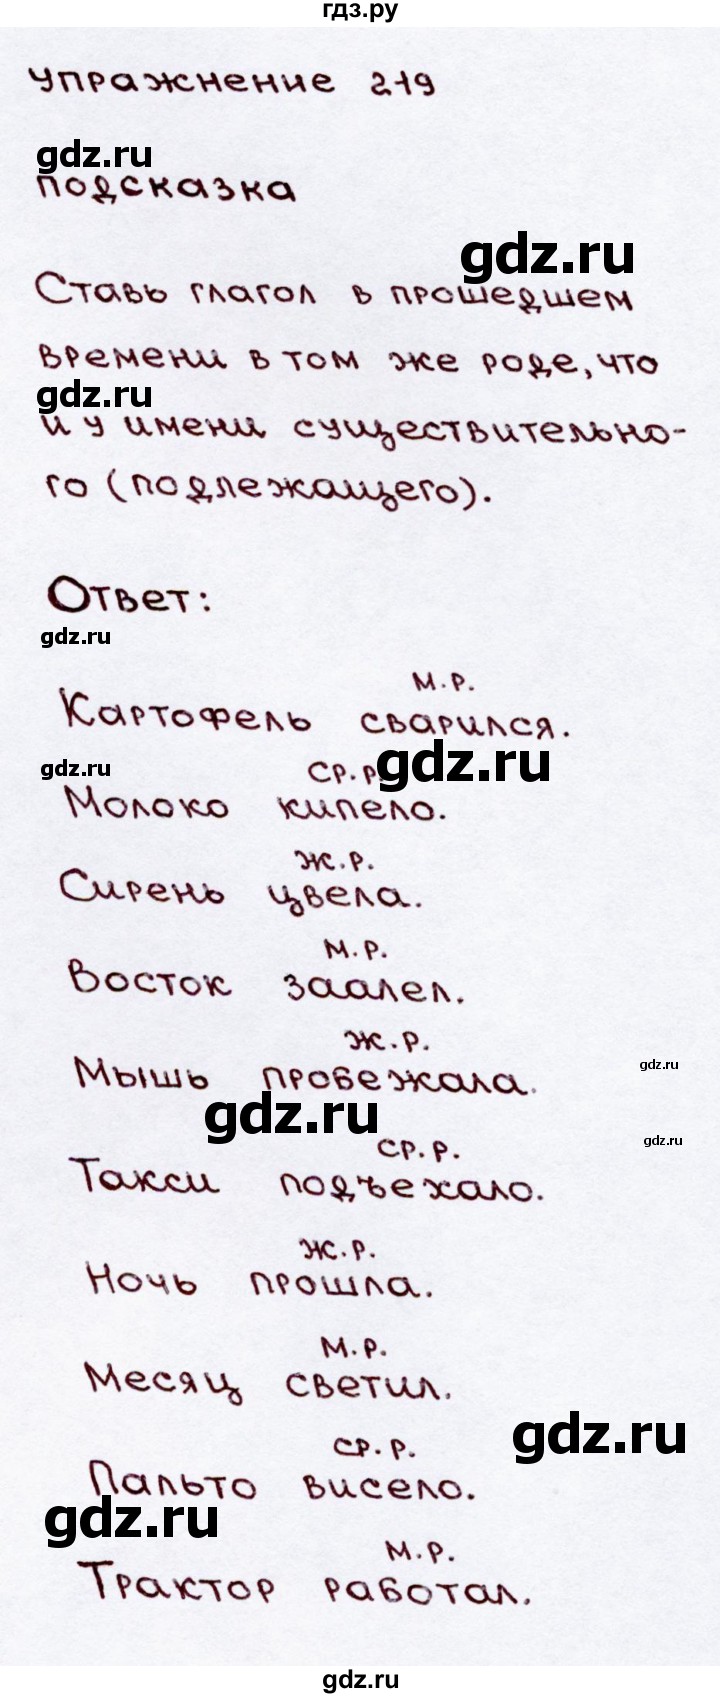 гдз.ру
Упражнение 219
gdz.ru
подсказка
gdz.ru
Ставь глагол в прошедшем
времени в том же роде, что
gdz.ru
и у имени существительно-
го (подлежащего).
Ответ:
gdz.ru
м.р.
Картофель сварился.
gdz.ru
ср.р.
gdz.ru
Молоко кипело.
ж.р.
Сирень цвела.
м.р.
Восток заалел.
ж.р.
gdz.ru
Мышь пробежала.
gdz.ru
gdz.ru
ср.р.
Такси подъехало.
ж.р.
Ночь прошла.
м.р.
Месяц светил.
gdz.ru
ср.р.
Пальто висело.
gdz.ru
м.р.
Трактор работал.
gdz.ru